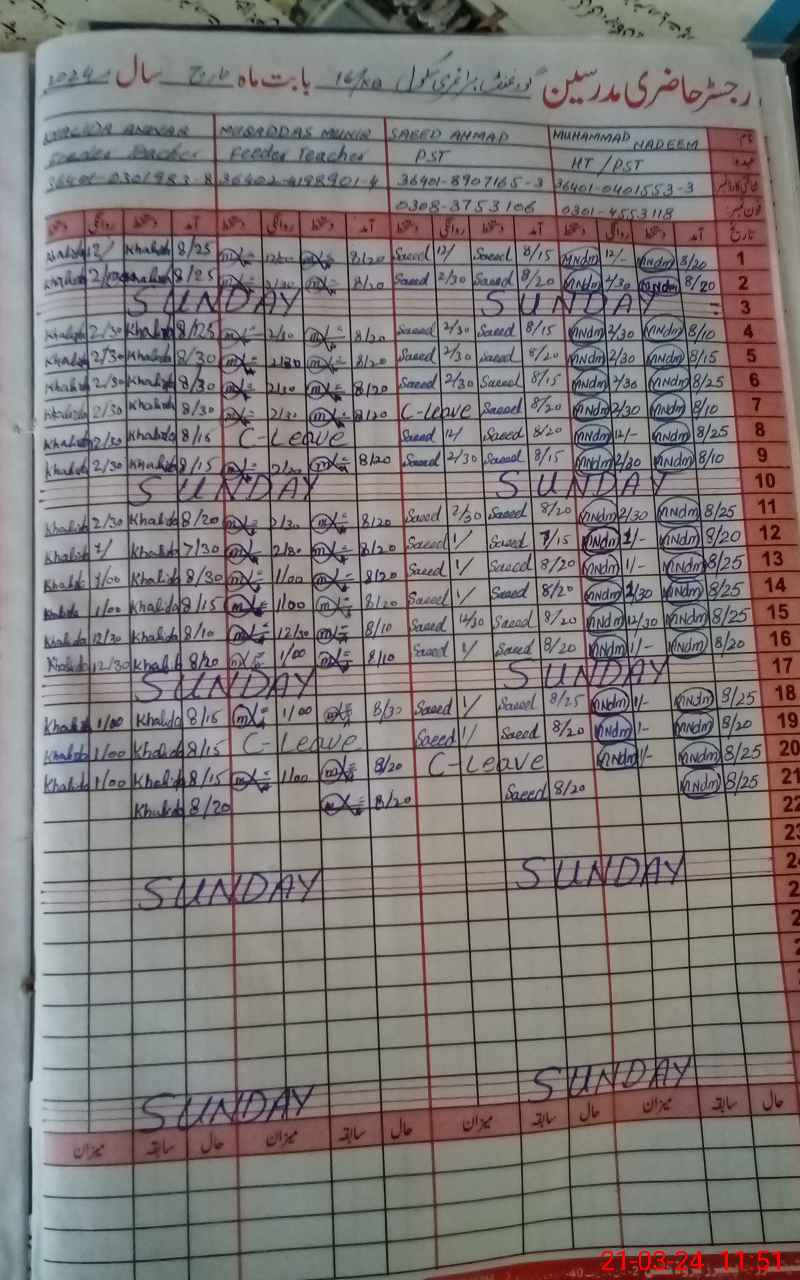 رجسٹر حاضری مدرسین گورنمنٹ پرائمری سکول 16/KB بابت ماہ مارچ سال 2024
KHALIDA ANWAR MUSADDAS MUNIR SAEED AHMAD MUHAMMAD NADEEM نام:
Feeder Teacher Feeder Teacher PST HT / PST عہدہ:
36401-0301983-8 36402-4198901-4 36401-8907165-3 36401-0401553-3 شناختی کارڈ نمبر
0308-3753106 0301-4553118 فون نمبر:
دستخط روانگی دستخط آمد دستخط روانگی دستخط آمد دستخط روانگی دستخط آمد دستخط روانگی دستخط آمد تاریخ
Khalida 12/ Khalida 8/25 12/00 8/20 Saeed 12/ Saeed 8/15 mNdm 12/- mNdm 8/20 1
Khalida Khalida 8/25 2/30 8/20 Saeed 2/30 Saeed 8/20 mNdm 2/30 mNdm 8/20 2
SUNDAY SUNDAY 3
Khalida 2/30 Khalida 8/25 2/30 8/20 Saeed 2/30 Saeed 8/15 mNdm 2/30 mNdm 8/10 4
Khalida 2/30 Khalida 8/30 2/30 8/20 Saeed 2/30 Saeed 8/20 mNdm 2/30 mNdm 8/15 5
Khalida 2/30 Khalida 8/30 2/30 8/20 Saeed 2/30 Saeed 8/15 mNdm 2/30 mNdm 8/25 6
Khalida 2/30 Khalida 8/30 2/30 8/20 C-Leave Saeed 8/20 mNdm 2/30 mNdm 8/10 7
Khalida 12/30 Khalida 8/15 C-Leave Saeed 12/ Saeed 8/20 mNdm 12/- mNdm 8/25 8
Khalida 2/30 Khalida 8/15 2/30 8/20 Saeed 2/30 Saeed 8/15 mNdm 2/30 mNdm 8/10 9
SUNDAY SUNDAY 10
Khalida 2/30 Khalida 8/20 2/30 8/20 Saeed 2/30 Saeed 8/20 mNdm 2/30 mNdm 8/25 11
Khalida 1/ Khalida 7/30 2/30 8/20 Saeed 1/ Saeed 7/15 mNdm 1/- mNdm 8/20 12
Khalida 1/00 Khalida 8/30 1/00 8/20 Saeed 1/ Saeed 8/20 mNdm 1/- mNdm 8/25 13
Khalida 1/00 Khalida 8/15 1/00 8/20 Saeed 1/ Saeed 8/20 mNdm mNdm 8/25 14
Khalida 12/30 Khalida 8/10 12/30 8/10 Saeed 12/30 Saeed 8/20 mNdm 12/30 mNdm 8/25 15
Khalida 12/30 Khalida 8/20 1/00 8/10 Saeed 1/ Saeed 8/20 mNdm 1/- mNdm 8/20 16
SUNDAY SUNDAY 17
Khalida 1/00 Khalida 8/15 1/00 8/30 Saeed 1/ Saeed 8/25 mNdm 1/- mNdm 8/25 18
Khalida 1/00 Khalida 8/15 C-Leave Saeed 1/ Saeed 8/20 mNdm 1/- mNdm 8/20 19
Khalida 1/00 Khalida 8/15 1/00 8/20 C-Leave mNdm 1/- mNdm 8/25 20
Khalida 8/20 8/20 Saeed 8/20 mNdm 8/25 21
22
23
SUNDAY SUNDAY
SUNDAY SUNDAY
میزان سابقہ حال میزان سابقہ حال میزان سابقہ حال میزان سابقہ حال
21-03-24 11:51